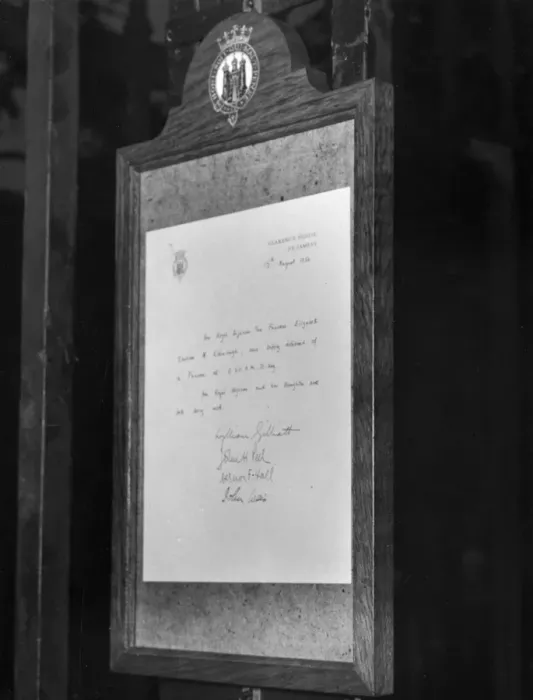 CLARENCE HOUSE
ST. JAMES'S
15th August 1950
Her Royal Highness The Princess Elizabeth
Duchess of Edinburgh, was safely delivered of
a Princess at 11.50 A.M. to-day.
Her Royal Highness and her daughter are
both doing well.
William Gilliatt
John H Peel
Vernon F. Hall
John Weir